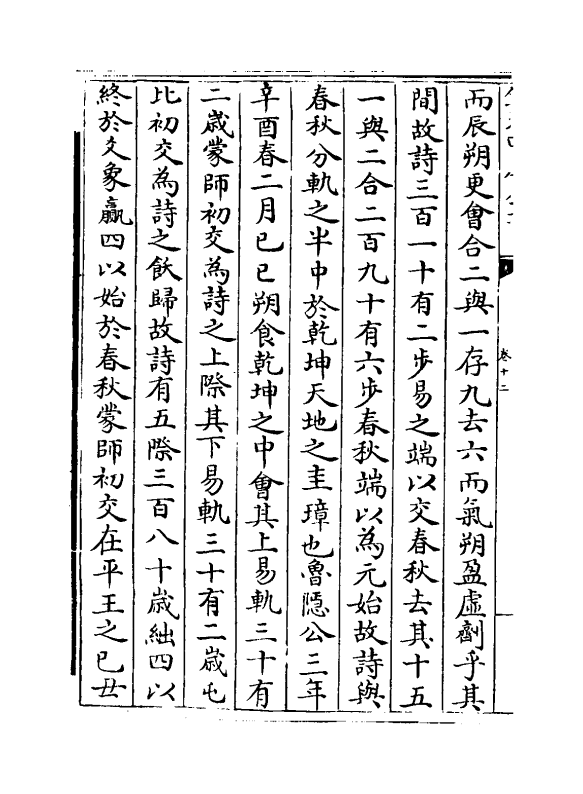 卷十二
而辰朔更會合二與一存九去六而氣朔盈虛劑乎其
間故詩三百一十有二步易之端以交春秋去其十五
一與二合二百九十有六步春秋端以為元始故詩與
春秋分軌之半中於乾坤天地之圭璋也魯隱公三年
辛酉春二月已已朔食乾坤之中會其上易軌三十有
二歲蒙師初交為詩之上際其下易軌三十有二歲屯
比初交為詩之飫歸故詩有五際三百八十歲絀四以
終於爻象贏四以始於春秋蒙師初交在平王之已丑